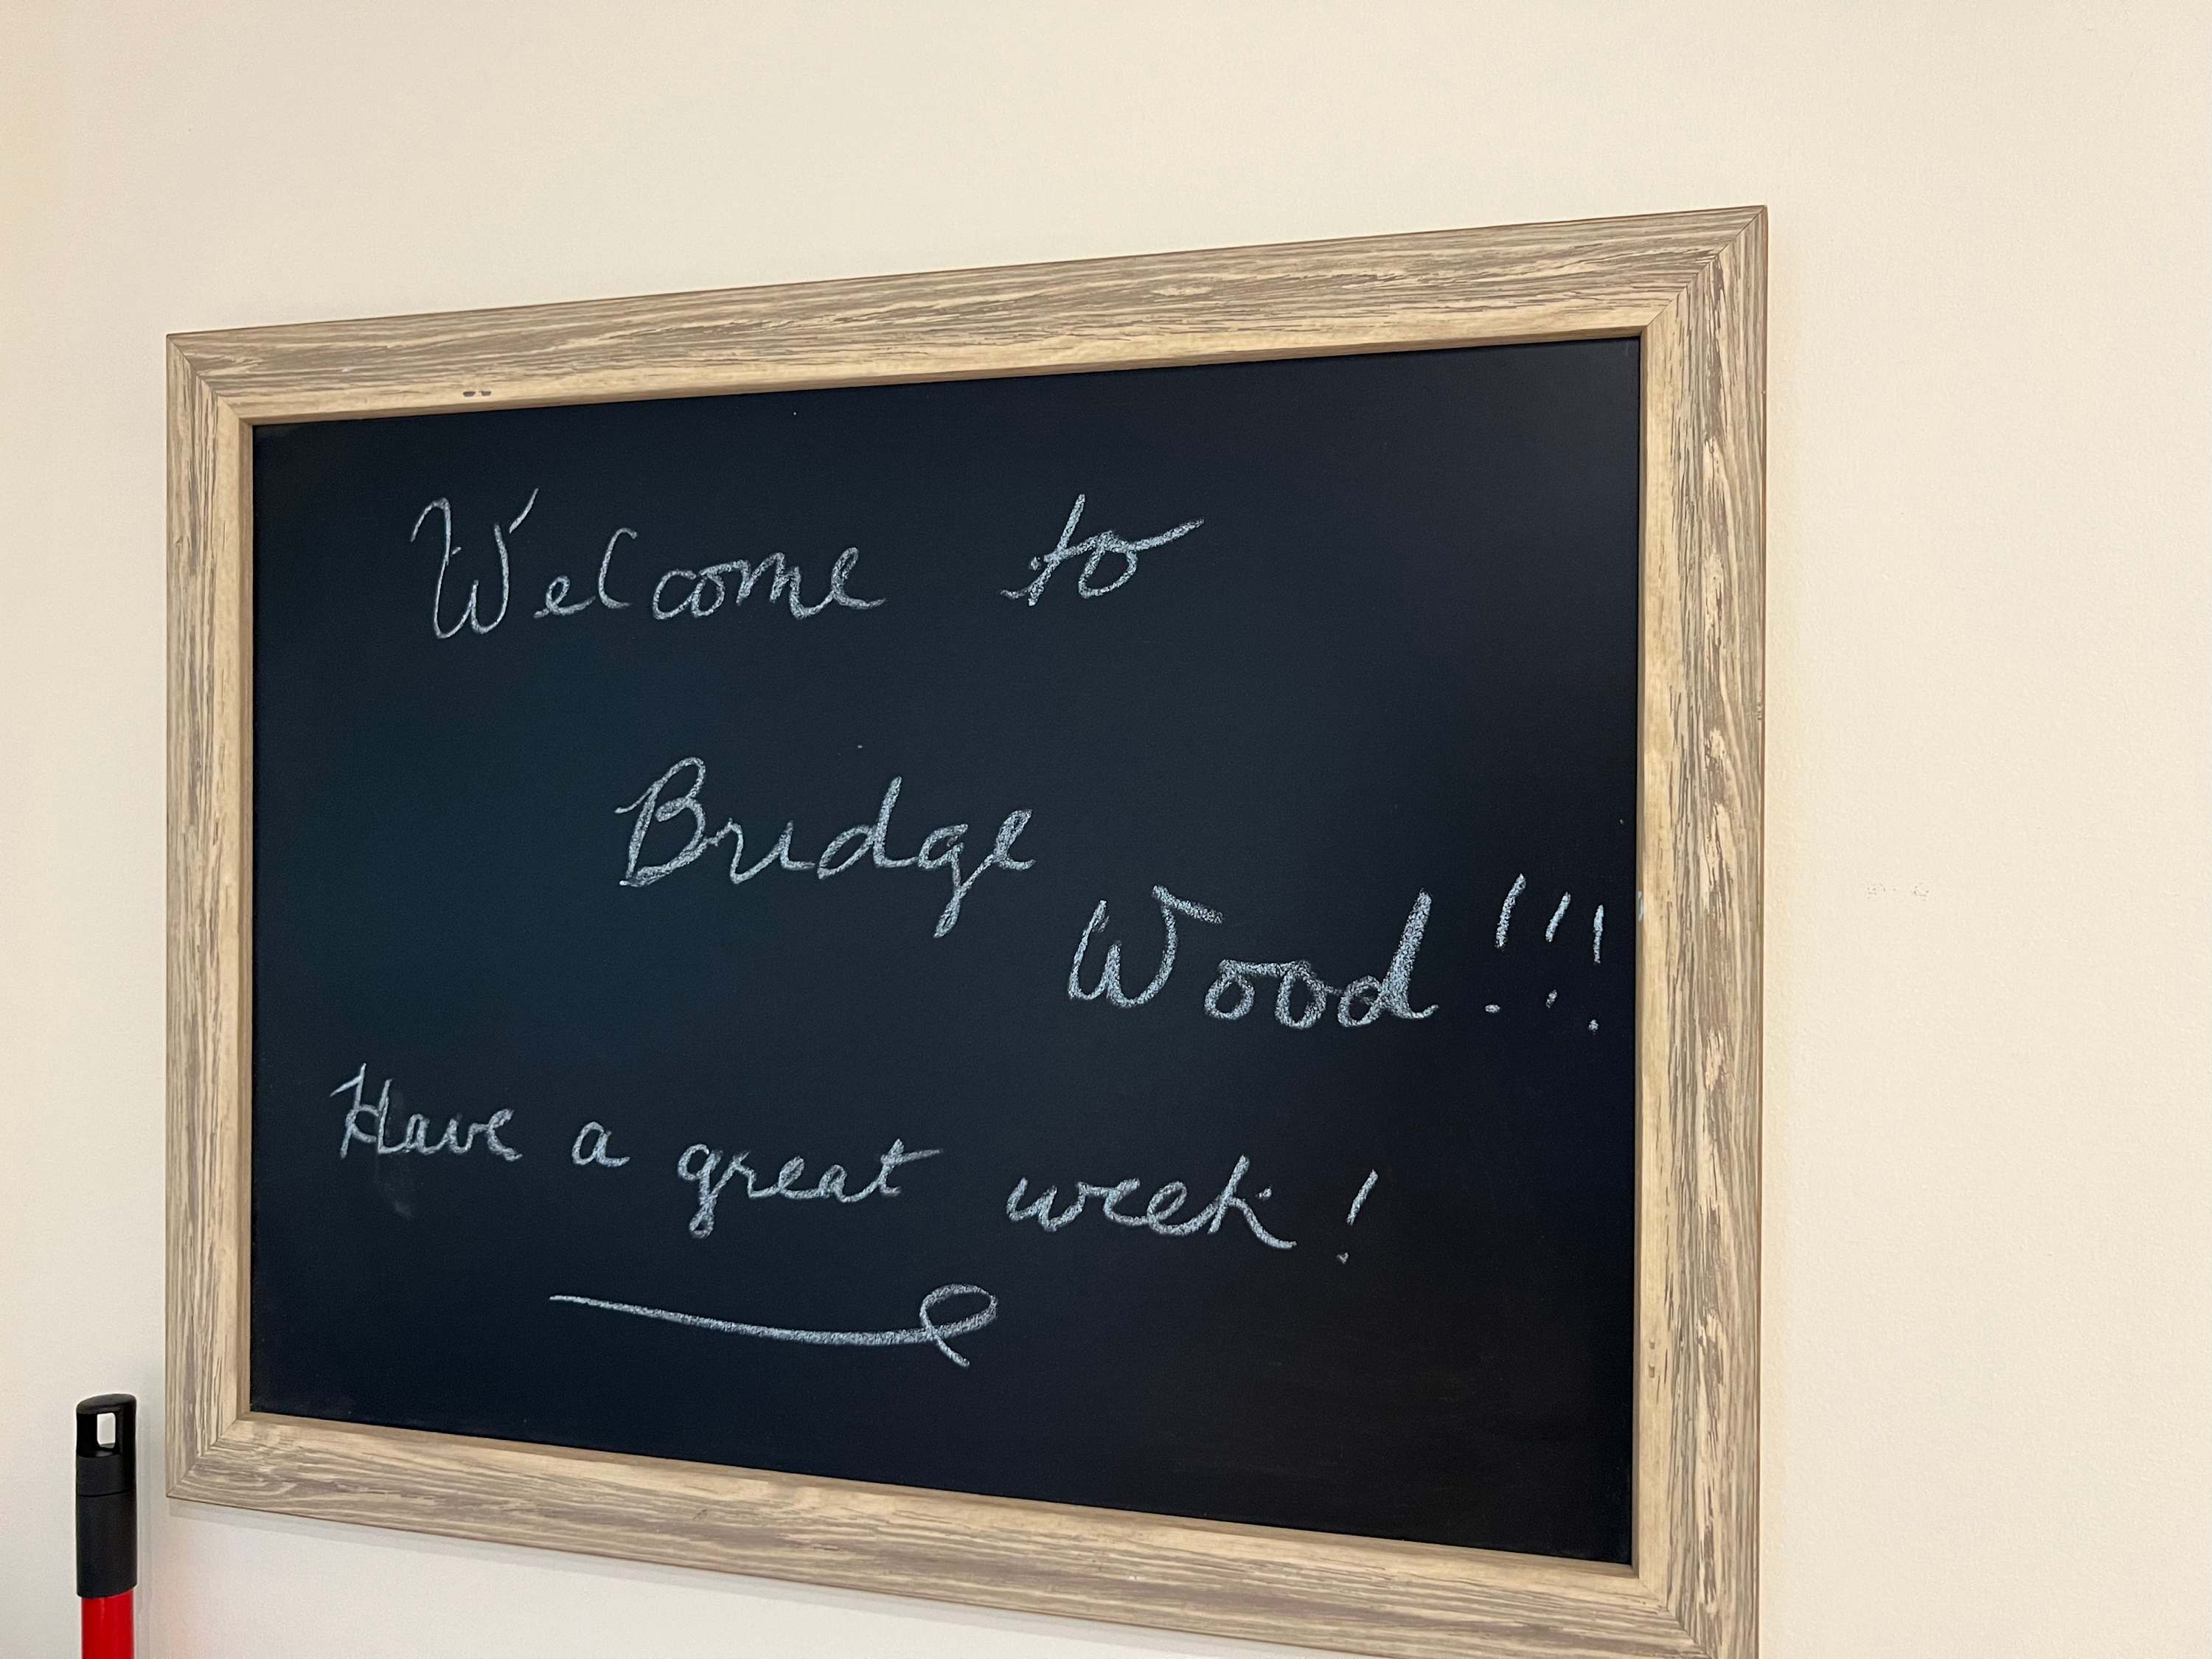 Welcome to
Bridge
Wood!!!
Have a great week!